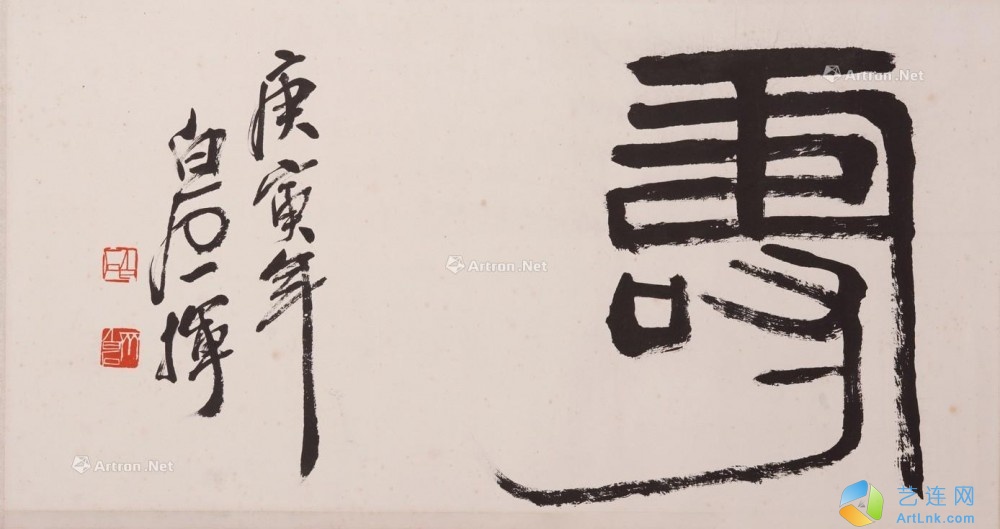 壽
庚寅年
白石一揮
Artron.Net
Artron.Net
Artron.Net
艺连网
ArtLnk.com